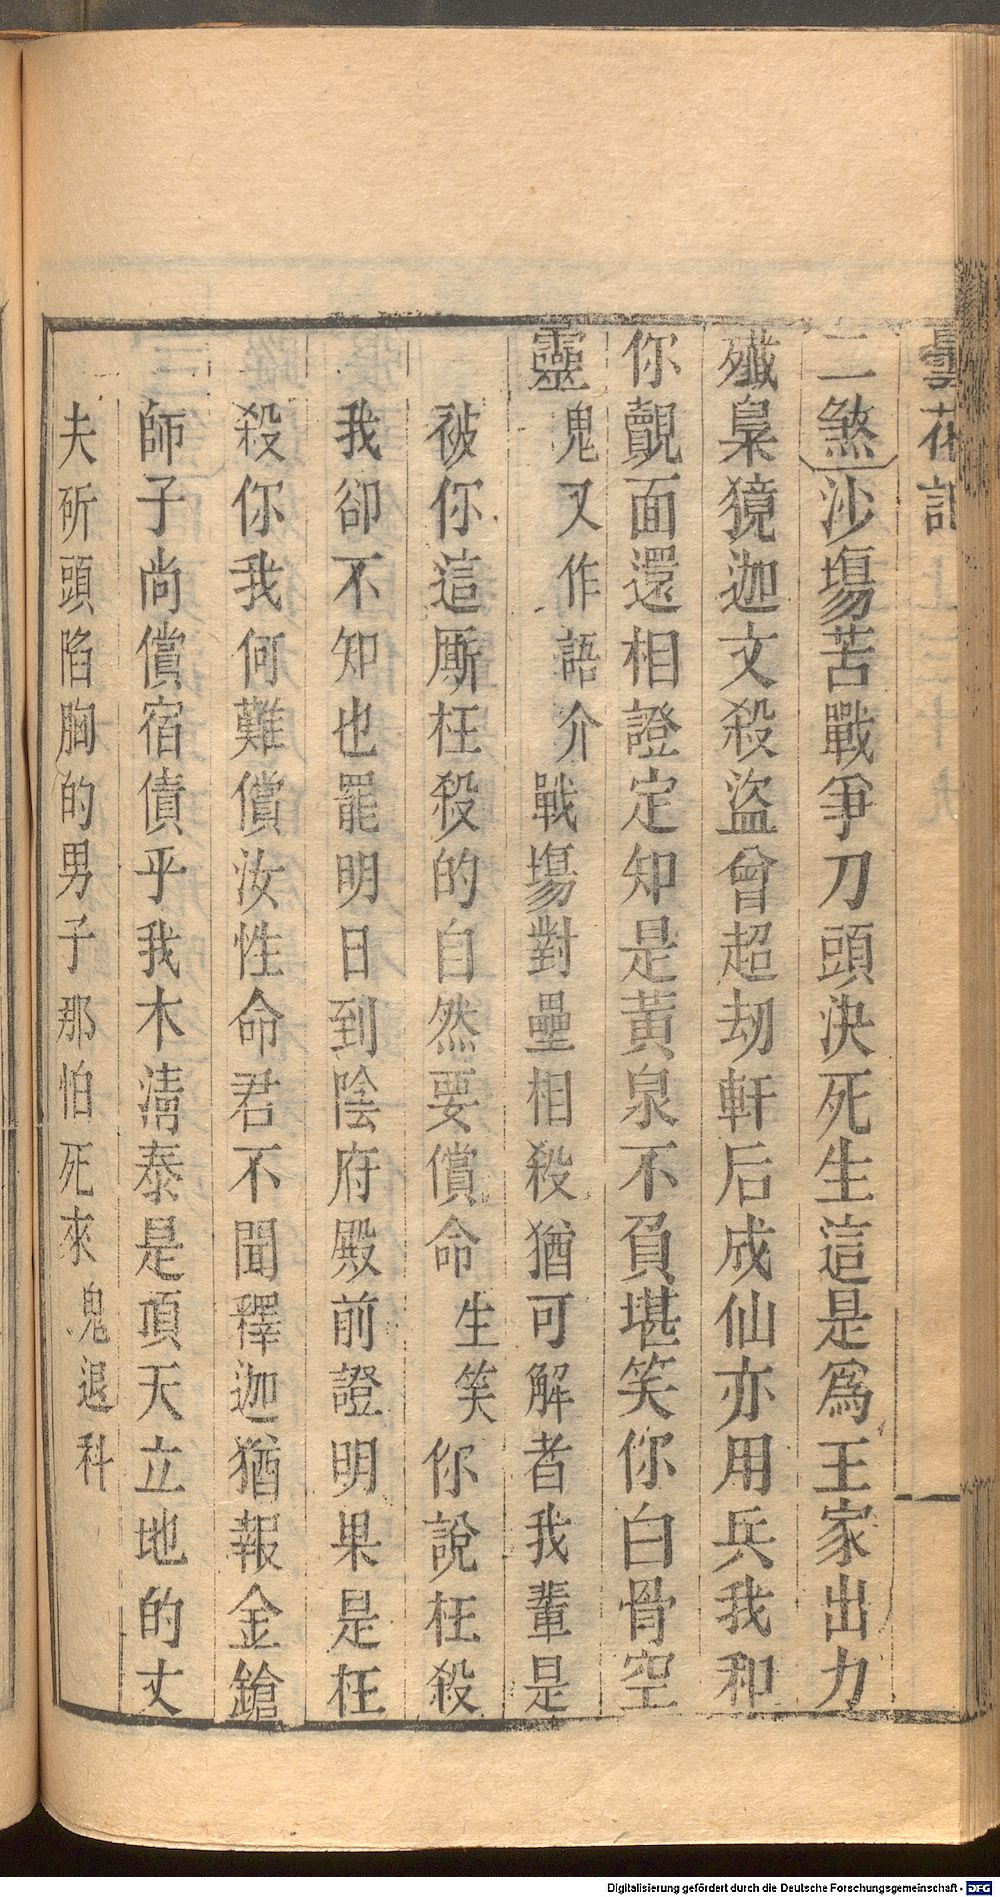 曇花記
二煞沙場苦戰爭刀頭決死生這是爲王家出力
殲梟獍迦文殺盜曾超劫軒后成仙亦用兵我和
你覿面還相證定知是黃泉不負堪笑你白骨空
靈鬼又作語介戰場對壘相殺猶可解者我輩是
被你這厮枉殺的自然要償命生笑你說枉殺
我卻不知也罷明日到陰府殿前證明果是枉
殺你我何難償汝性命君不聞釋迦猶報金鎗
師子尚償宿債乎我木清泰是項天立地的丈
夫斫頭陷胸的男子那怕死來鬼退科
Digitalisierung gefördert durch die Deutsche Forschungsgemeinschaft - DFG